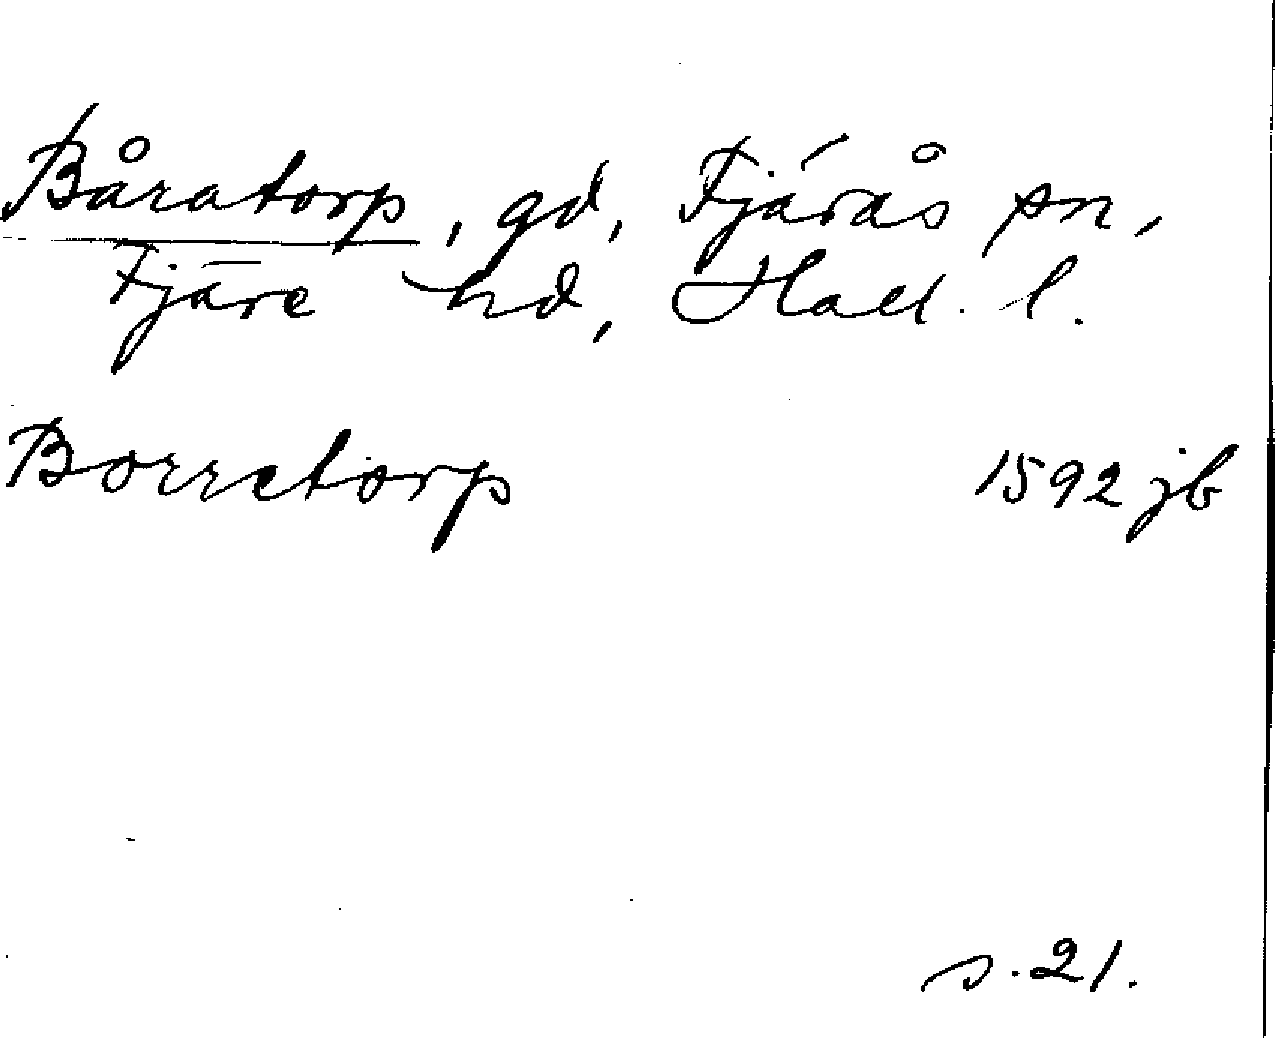 Båratorp, gd, Fjärås sn,
Fjäre hd, Hall. l.
Borretorp 1592 jb
s. 21.